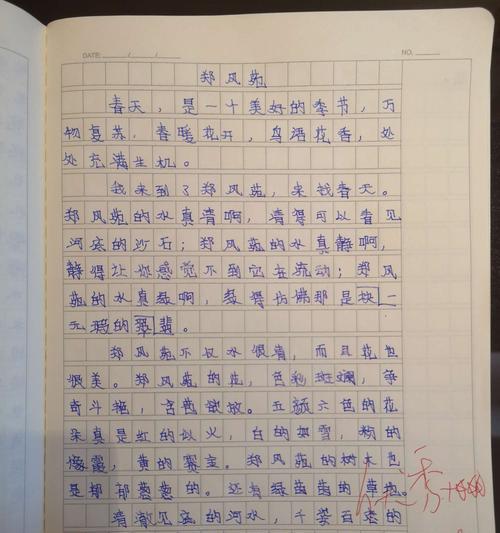 DATE: / /
NO.
郑风苑
春天，是一个美好的季节，万
物复苏，春暖花开，鸟语花香，处
处充满生机。
我来到了郑风苑，来找春天。
郑风苑的水真清啊，清得可以看见
河底的沙石；郑风苑的水真静啊，
静得让你感觉不到它在流动；郑风
苑的水真绿啊，绿得仿佛那是块一
无瑕的翡翠。
郑风苑不仅水很清，而且花也
很美。郑风苑的花，色彩斑斓，争
奇斗艳，含苞欲放。五颜六色的花
朵真是红的似火，白的如雪，粉的
像霞，黄的赛金。郑风苑的树木也
是郁郁葱葱的。还有绿茵茵的草地。
清澈见底的河水，千姿百态的
优秀